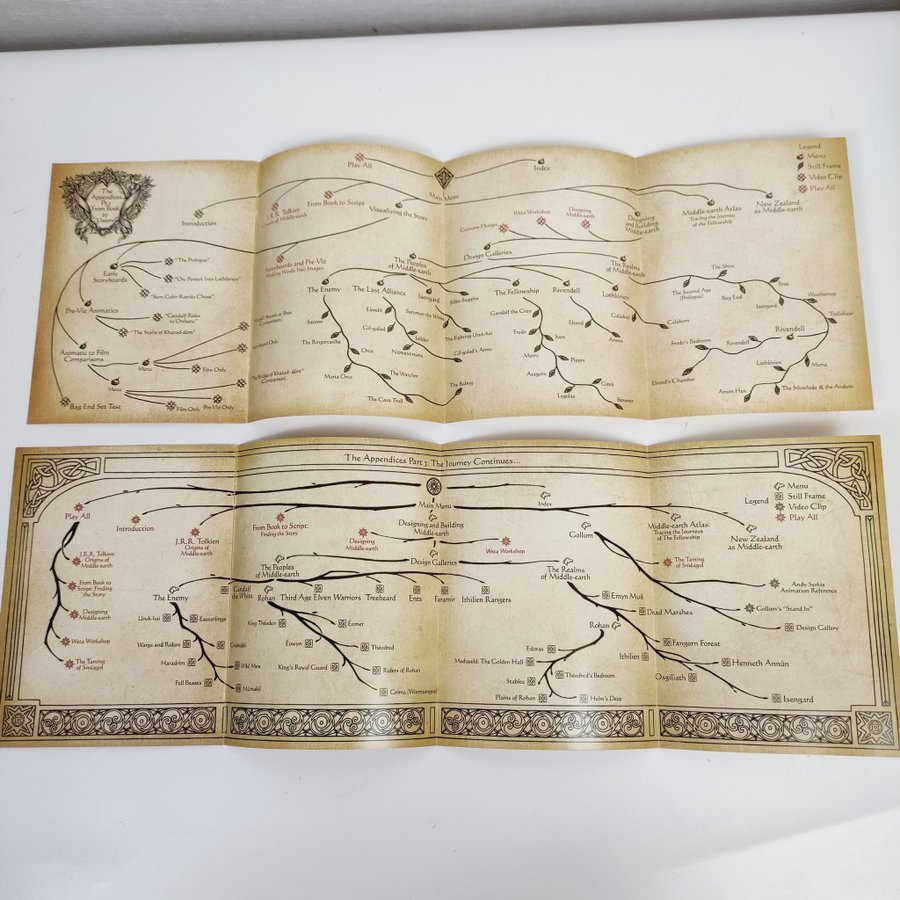 The
Appendices
Pt.1
From Book
to
Vision
Play All
Index
Main Menu
Legend
Menu
Still Frame
Video Clip
Play All
Introduction
J.R.R. Tolkien
Creator of Middle-earth
From Book to Script
Visualizing the Story
Costume Design
Weta Workshop
Designing
Middle-earth
Designing
and Building
Middle-earth
Middle-earth Atlas
Tracing the Journey
of the Fellowship
New Zealand
as Middle-earth
Storyboards and Pre-Viz
Making Words Into Images
Design Galleries
The Peoples
of Middle-earth
The Realms
of Middle-earth
Early
Storyboards
"The Prologue"
"Orc Pursuit Into Lothlórien"
"Sarn Gebir Rapids Chase"
Pre-Viz Animatics
"Gandalf Rides
to Orthanc"
"The Stairs of Khazad-dûm"
Animatic to Film
Comparisons
Menu
Film Only
Menu
Film Only
Pre-Viz Only
Bag End Set Test
The Enemy
Sauron
The Ringwraiths
Orcs
Moria Orcs
The Watcher
The Cave Troll
The Balrog
The Last Alliance
Elendil
Isildur
Gil-galad
Númenóreans
Gil-galad's Army
Isengard
Saruman the White
The Fighting Uruk-hai
Bilbo Baggins
The Fellowship
Gandalf the Grey
Frodo
Sam
Merry
Pippin
Aragorn
Gimli
Legolas
Boromir
Rivendell
Elrond
Arwen
Lothlórien
Galadriel
Celeborn
The Second Age
(Prologue)
The Shire
Bag End
Bree
Isengard
Weathertop
Trollshaw
Rivendell
Rivendell
Frodo's Bedroom
Elrond's Chamber
Moria
Lothlórien
The Silverlode & the Anduin
Amon Hen
The Appendices Part 3: The Journey Continues...
Main Menu
Index
Legend
Menu
Still Frame
Video Clip
Play All
Play All
Introduction
J.R.R. Tolkien
Origins of
Middle-earth
From Book to Script:
Finding the Story
Designing
Middle-earth
Designing and Building
Middle-earth
Weta Workshop
Design Galleries
Gollum
Middle-earth Atlas:
Tracing the Journeys
of The Fellowship
New Zealand
as Middle-earth
J.R.R. Tolkien:
Origins of
Middle-earth
From Book to
Script: Finding
the Story
Designing
Middle-earth
Weta Workshop
The Taming
of Sméagol
The Taming of
Sméagol
Andy Serkis
Animation Reference
Gollum's "Stand In"
Design Gallery
The Peoples
of Middle-earth
The Realms
of Middle-earth
The Enemy
Gandalf
the White
Rohan
Third Age Elven Warriors
Treebeard
Ents
Faramir
Ithilien Rangers
Uruk-hai
Easterlings
Wargs and Riders
Haradrim
Wild Men
Fell Beasts
Mûmakil
King Théoden
Éomer
Éowyn
Théodred
King's Royal Guard
Riders of Rohan
Gríma (Wormtongue)
Emyn Muil
Dead Marshes
Rohan
Edoras
Meduseld: The Golden Hall
Théodred's Bedroom
Stables
Plains of Rohan
Helm's Deep
Fangorn Forest
Ithilien
Henneth Annûn
Osgiliath
Isengard